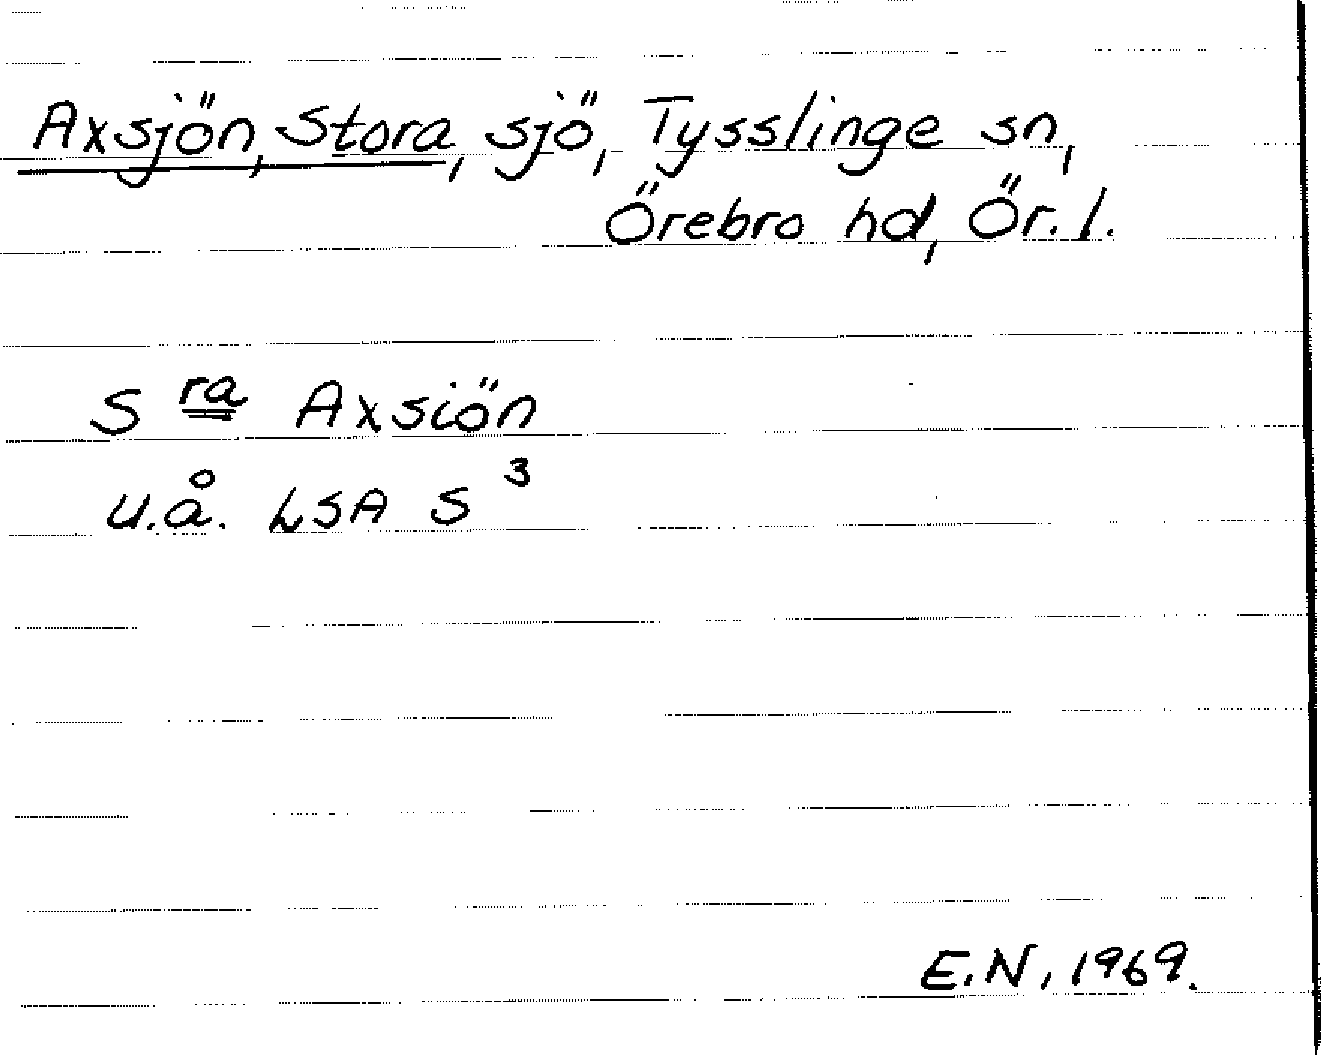 Axsjön, Stora, sjö, Tysslinge sn,
Örebro hd, Ör. l.
S ra Axsiön
u.å. LSA S 3
E.N, 1969.